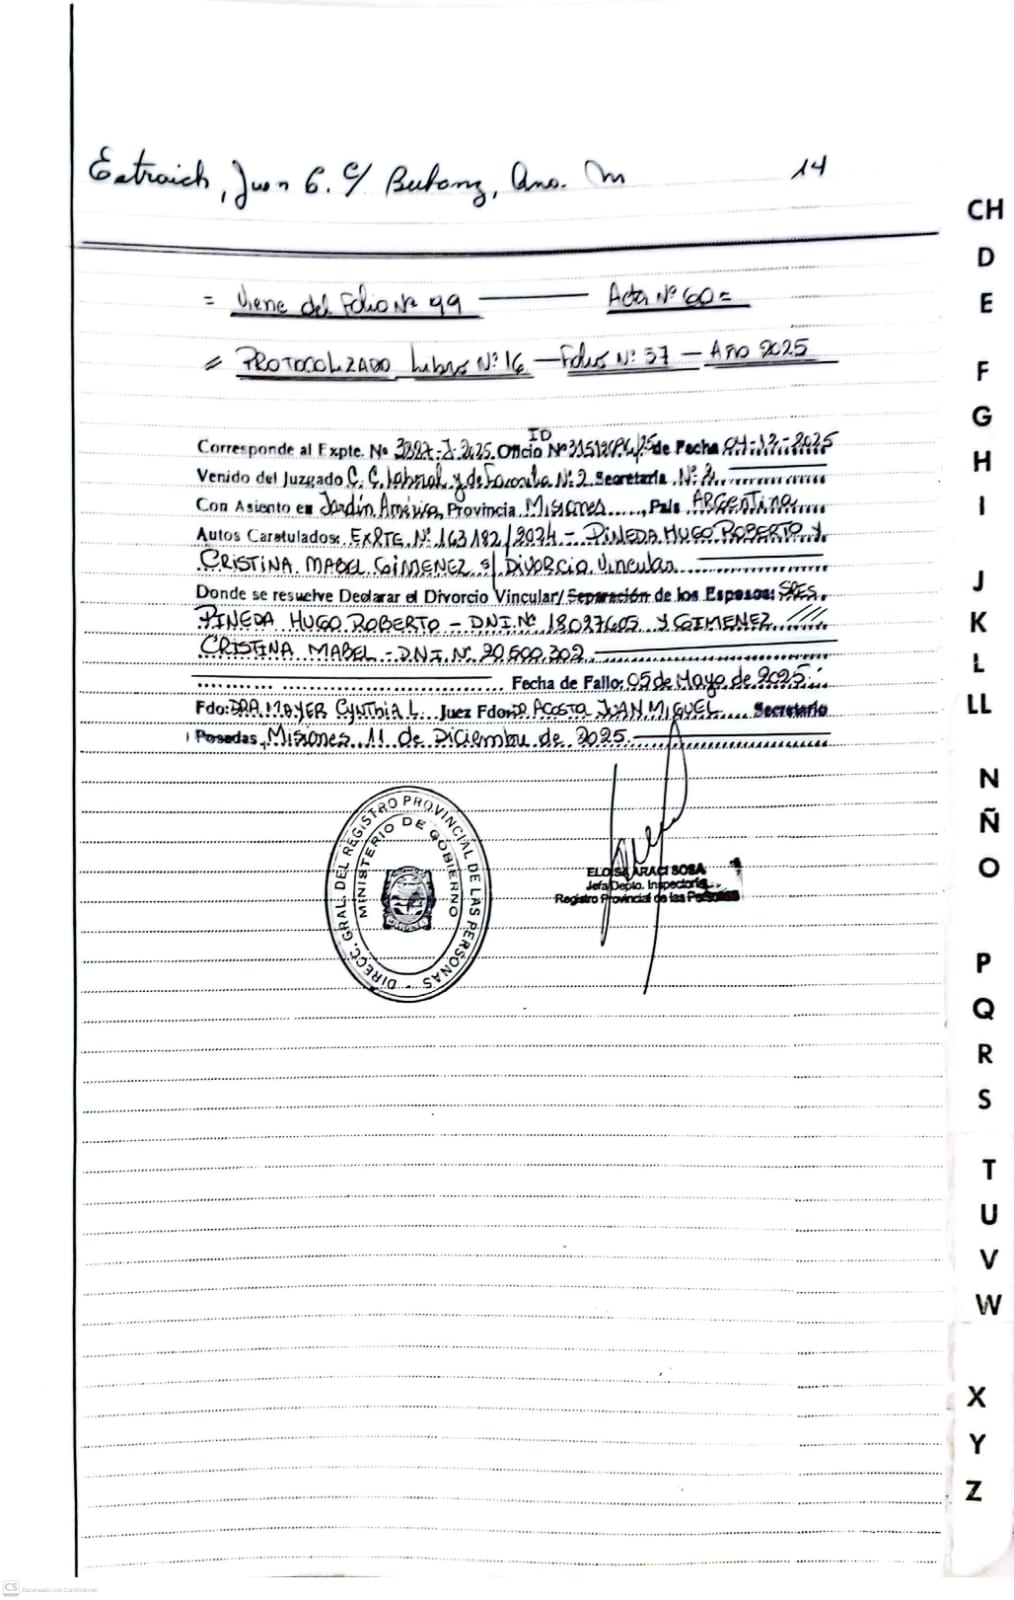 Juan C. c/ Ana. M 14
CH
D
E
= Viene del Folio Nº 99 Acta Nº 60 =
= PROTOCOLIZADO Libro Nº: 16 — Folio Nº: 37 — Año 2025
F
G
Corresponde al Expte. No 3227-J-2025. Oficio ID Nº /25 de Fecha 04-12-2025
H
Venido del Juzgado C. C. Laboral y de Familia Nº: 2 Secretaría Nº: 2
Con Asiento en Jardín América, Provincia Misiones, País ARGENTINA
I
Autos Caratulados: EXPTE. Nº 163182/2024 - PINEDA HUGO ROBERTO Y
CRISTINA MABEL GIMENEZ s/ Divorcio Vincular
J
Donde se resuelve Declarar el Divorcio Vincular/ Separación de los Esposos: SRES.
PINEDA HUGO ROBERTO - DNI. Nº 18027605 Y GIMENEZ
K
CRISTINA MABEL - DNI. Nº 20.500.302
L
Fecha de Fallo: 05 de Mayo de 2025
LL
Fdo: DRA. MAYER CYNTHIA L. Juez Fdo: DR ACOSTA JUAN MIGUEL Secretario
Posadas, Misiones 11 de Diciembre de 2025
N
Ñ
DIRECC. GRAL. DEL REGISTRO PROVINCIAL DE LAS PERSONAS
MINISTERIO DE GOBIERNO
ELOISA ARACI SOSA
Jefa Depto. Inspectoría
Registro Provincial de las Personas
O
P
Q
R
S
T
U
V
W
X
Y
Z
CS Escaneado con CamScanner